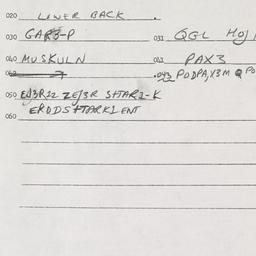 020 LOWER BACK .
030 GARB-P 031 QGL HOJ
040 MUSKULN 041 PAX3
.043 PODPA,X3M Q PO
050 EJ3R12 ZEJ3R SHTAR1-K
060 ERDDSHTARK1 ENT